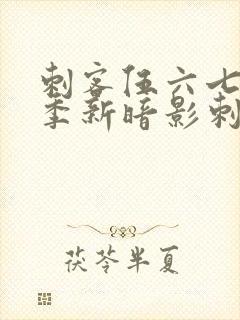 刺客伍六七
季新暗影刺
茯苓半夏